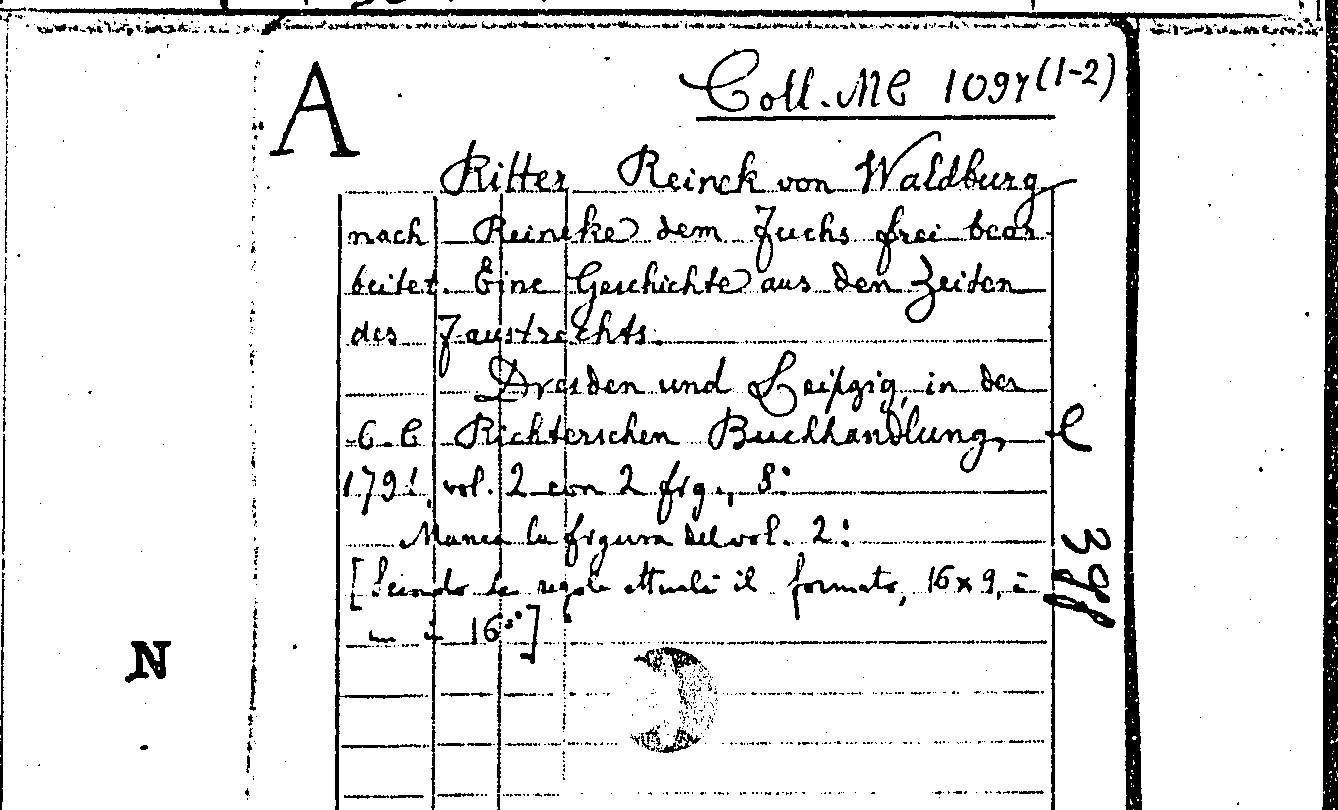 A
Coll. MC 1097 (1-2)
Ritter Reinck von Waldburg
nach Reineke dem Fuchs frei bear-
beitet. Eine Geschichte aus den Zeiten
des Faustrechts.
Dresden und Leipzig, in der
C. C. Richterschen Buchhandlung,
1791, vol. 2 con 2 fig., 8º
Manca la figura del vol. 2º
[Secondo le regole attuali il formato, 16x9, è
in 16º]
398
N